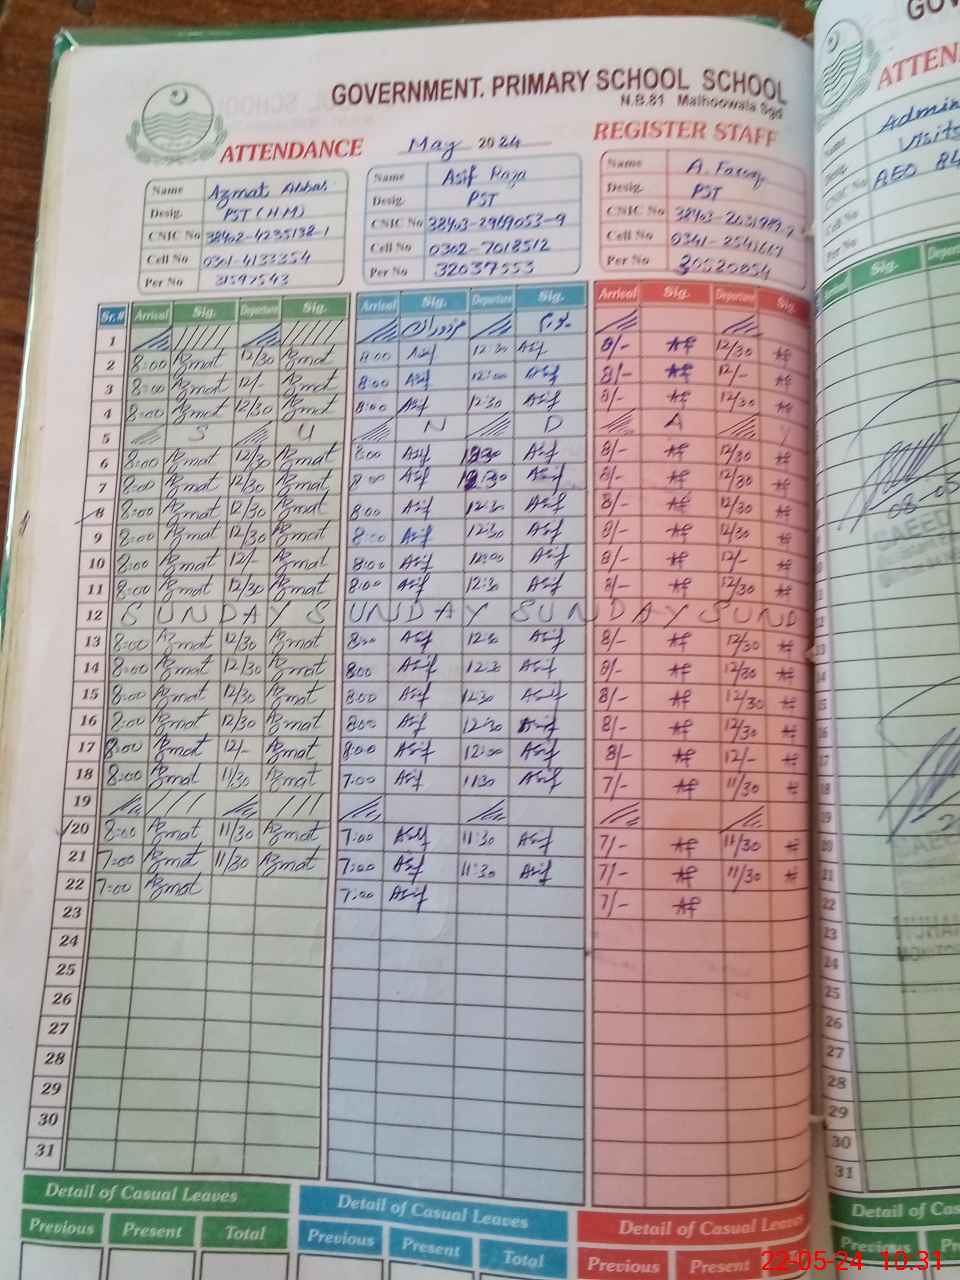 GOVERNMENT. PRIMARY SCHOOL SCHOOL
N.B.81 Malhoowala Sgd
ATTENDANCE May 2024 REGISTER STAFF
Name Azmat Abbas Name Asif Raza Name A. Farooq
Desig. PST (HM) Desig. PST Desig. PST
CNIC No 38402-4235138-1 CNIC No 38403-2969053-9 CNIC No
Cell No 0301-4133354 Cell No 0302-7018512 Cell No 0341-2541667
Per No 31592543 Per No 32037553 Per No 30520054
Sr.# Arrival Sig. Departure Sig. Arrival Sig. Departure Sig. Arrival Sig. Departure Sig.
1
2 8:00 Azmat 12/30 Azmat 8:00 Asif 12:30 Asif 8/- AF 12/30 AF
3 8:00 Azmat 12/- Azmat 8:00 Asif 12:00 Asif 8/- AF 12/- AF
4 8:00 Azmat 12/30 Azmat 8:00 Asif 12:30 Asif 8/- AF 12/30 AF
5 S U N D A Y
6 8:00 Azmat 12/30 Azmat 8:00 Asif 12:30 Asif 8/- AF 12/30 AF
7 8:00 Azmat 12/30 Azmat 8:00 Asif 12:30 Asif 8/- AF 12/30 AF
8 8:00 Azmat 12/30 Azmat 8:00 Asif 12:30 Asif 8/- AF 12/30 AF
9 8:00 Azmat 12/30 Azmat 8:00 Asif 12:30 Asif 8/- AF 12/30 AF
10 8:00 Azmat 12/- Azmat 8:00 Asif 12:00 Asif 8/- AF 12/- AF
11 8:00 Azmat 12/30 Azmat 8:00 Asif 12:30 Asif 8/- AF 12/30 AF
12 SUNDAY SUNDAY SUNDAY SUND
13 8:00 Azmat 12/30 Azmat 8:00 Asif 12:30 Asif 8/- AF 12/30 AF
14 8:00 Azmat 12/30 Azmat 8:00 Asif 12:30 Asif 8/- AF 12/30 AF
15 8:00 Azmat 12/30 Azmat 8:00 Asif 12:30 Asif 8/- AF 12/30 AF
16 8:00 Azmat 12/30 Azmat 8:00 Asif 12:30 Asif 8/- AF 12/30 AF
17 8:00 Azmat 12/- Azmat 8:00 Asif 12:00 Asif 8/- AF 12/- AF
18 8:00 Azmat 11/30 Azmat 7:00 Asif 11:30 Asif 7/- AF 11/30 AF
19
20 8:00 Azmat 11/30 Azmat 7:00 Asif 11:30 Asif 7/- AF 11/30 AF
21 7:00 Azmat 11/30 Azmat 7:00 Asif 11:30 Asif 7/- AF 11/30 AF
22 7:00 Azmat 7:00 Asif 7/- AF
23
24
25
26
27
28
29
30
31
Detail of Casual Leaves Detail of Casual Leaves Detail of Casual Leaves
Previous Present Total Previous Present Total Previous Present
22-05-24 10:31